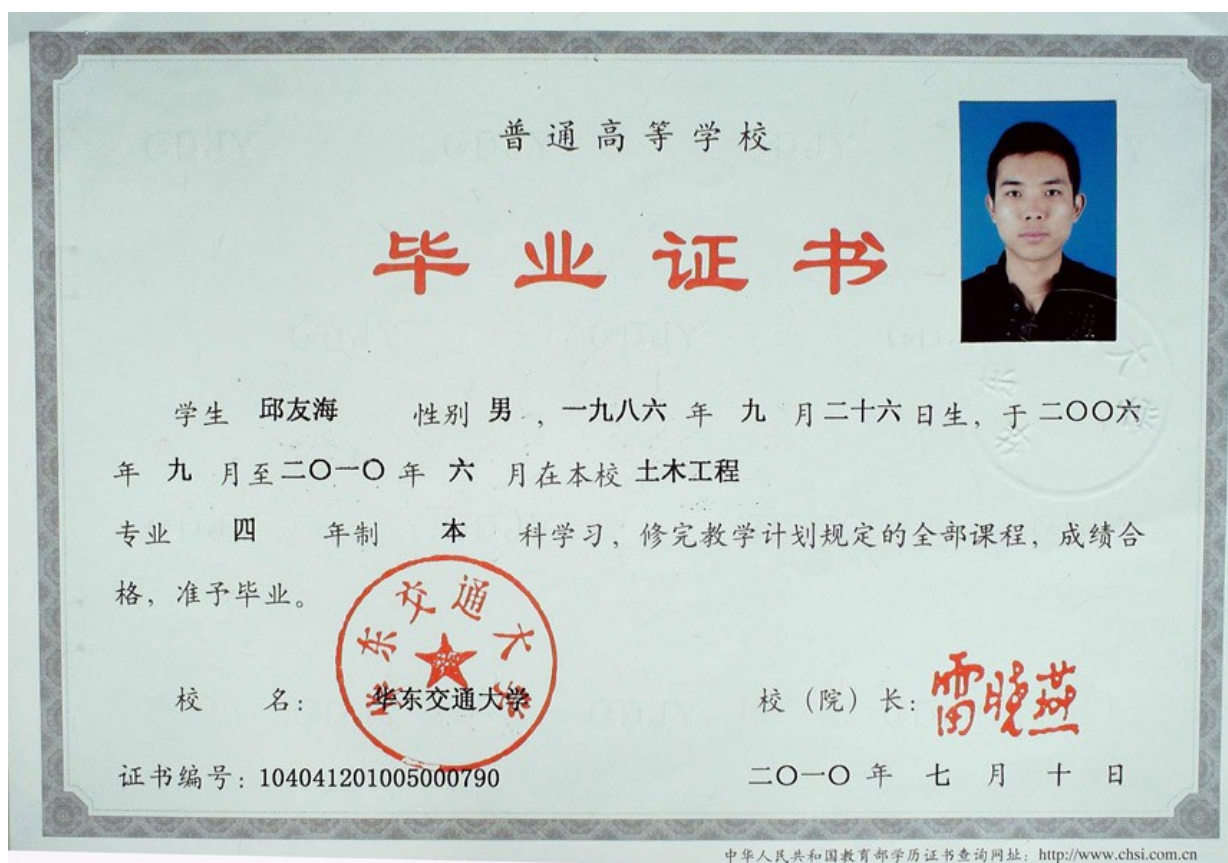 普通高等学校
毕业证书
学生 邱友海 性别 男 , 一九八六 年 九 月 二十六 日生, 于 二〇〇六
年 九 月至 二〇一〇 年 六 月在本校 土木工程
专业 四 年制 本 科学习, 修完教学计划规定的全部课程, 成绩合
格, 准予毕业。
华东交通大学
校 名: 华东交通大学 校(院)长: 雷晓燕
证书编号: 104041201005000790 二〇一〇 年 七 月 十 日
中华人民共和国教育部学历证书查询网址: http://www.chsi.com.cn